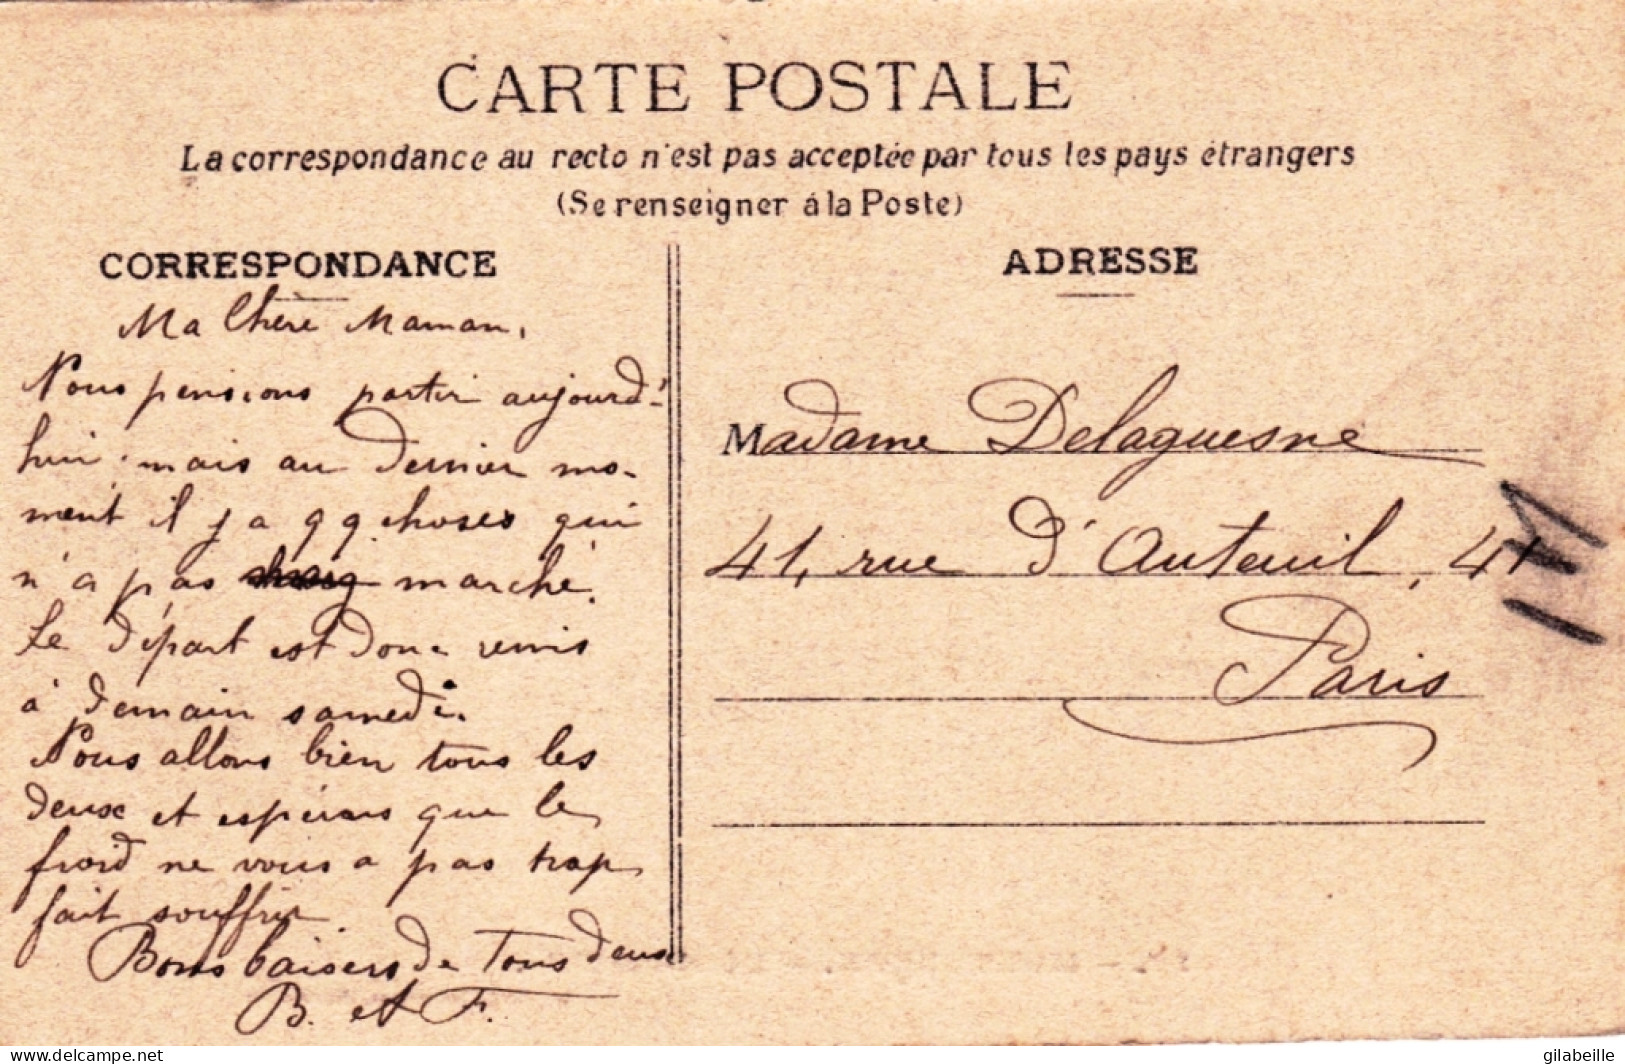 CARTE POSTALE
La correspondance au recto n'est pas acceptée par tous les pays étrangers
(Se renseigner à la Poste)
CORRESPONDANCE
Ma Chère Maman,
Nous pensions partir aujourd'-
hui. mais au dernier mo-
ment il y a qq choses qui
n'a pas marché.
Le départ est donc remis
à demain samedi.
Nous allons bien tous les
deux et espérons que le
froid ne vous a pas trop
fait souffrir
Bons baisers de Tous deux
B. et F.
ADRESSE
Madame Delaquesne
41, rue d'Auteuil, 41
Paris
https://www.delcampe.net
gilabeille